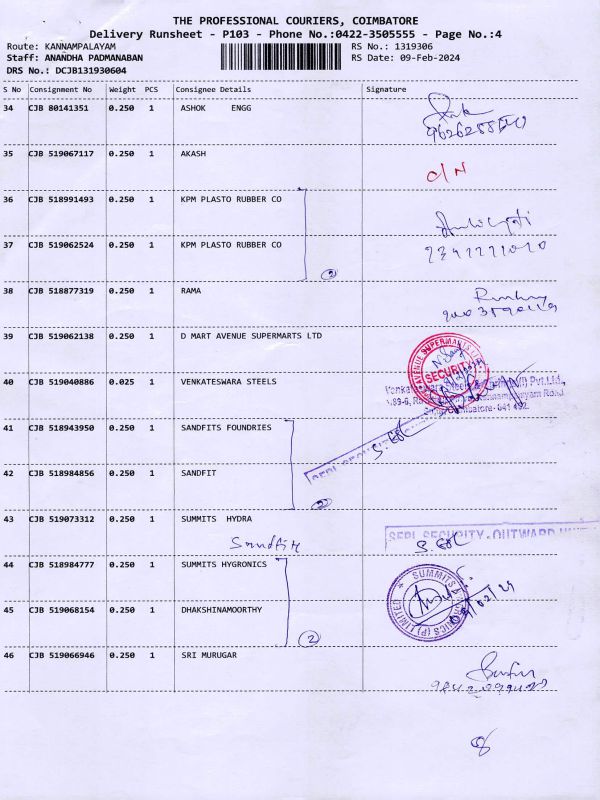 THE PROFESSIONAL COURIERS, COIMBATORE
Delivery Runsheet - P103 - Phone No.:0422-3505555 - Page No.:4
Route: KANNAMPALAYAM RS No.: 1319306
Staff: ANANDHA PADMANABAN RS Date: 09-Feb-2024
DRS No.: DCJB131930604
S No Consignment No Weight PCS Consignee Details Signature
34 CJB 80141351 0.250 1 ASHOK ENGG
35 CJB 519067117 0.250 1 AKASH
36 CJB 518991493 0.250 1 KPM PLASTO RUBBER CO
37 CJB 519062524 0.250 1 KPM PLASTO RUBBER CO
2
38 CJB 518877319 0.250 1 RAMA
39 CJB 519062138 0.250 1 D MART AVENUE SUPERMARTS LTD
AVENUE SUPERMARTS
SECURITY
40 CJB 519040886 0.025 1 VENKATESWARA STEELS
Venkateswara Pvt.Ltd.,
Road
Coimbatore- 641 402.
41 CJB 518943950 0.250 1 SANDFITS FOUNDRIES
42 CJB 518984856 0.250 1 SANDFIT
2
43 CJB 519073312 0.250 1 SUMMITS HYDRA
SEPL SECURITY-OUTWARD
Sandfit
44 CJB 518984777 0.250 1 SUMMITS HYGRONICS
SUMMITS HYGRONICS (P) LIMITED
45 CJB 519068154 0.250 1 DHAKSHINAMOORTHY
09/02/24
2
46 CJB 519066946 0.250 1 SRI MURUGAR
8